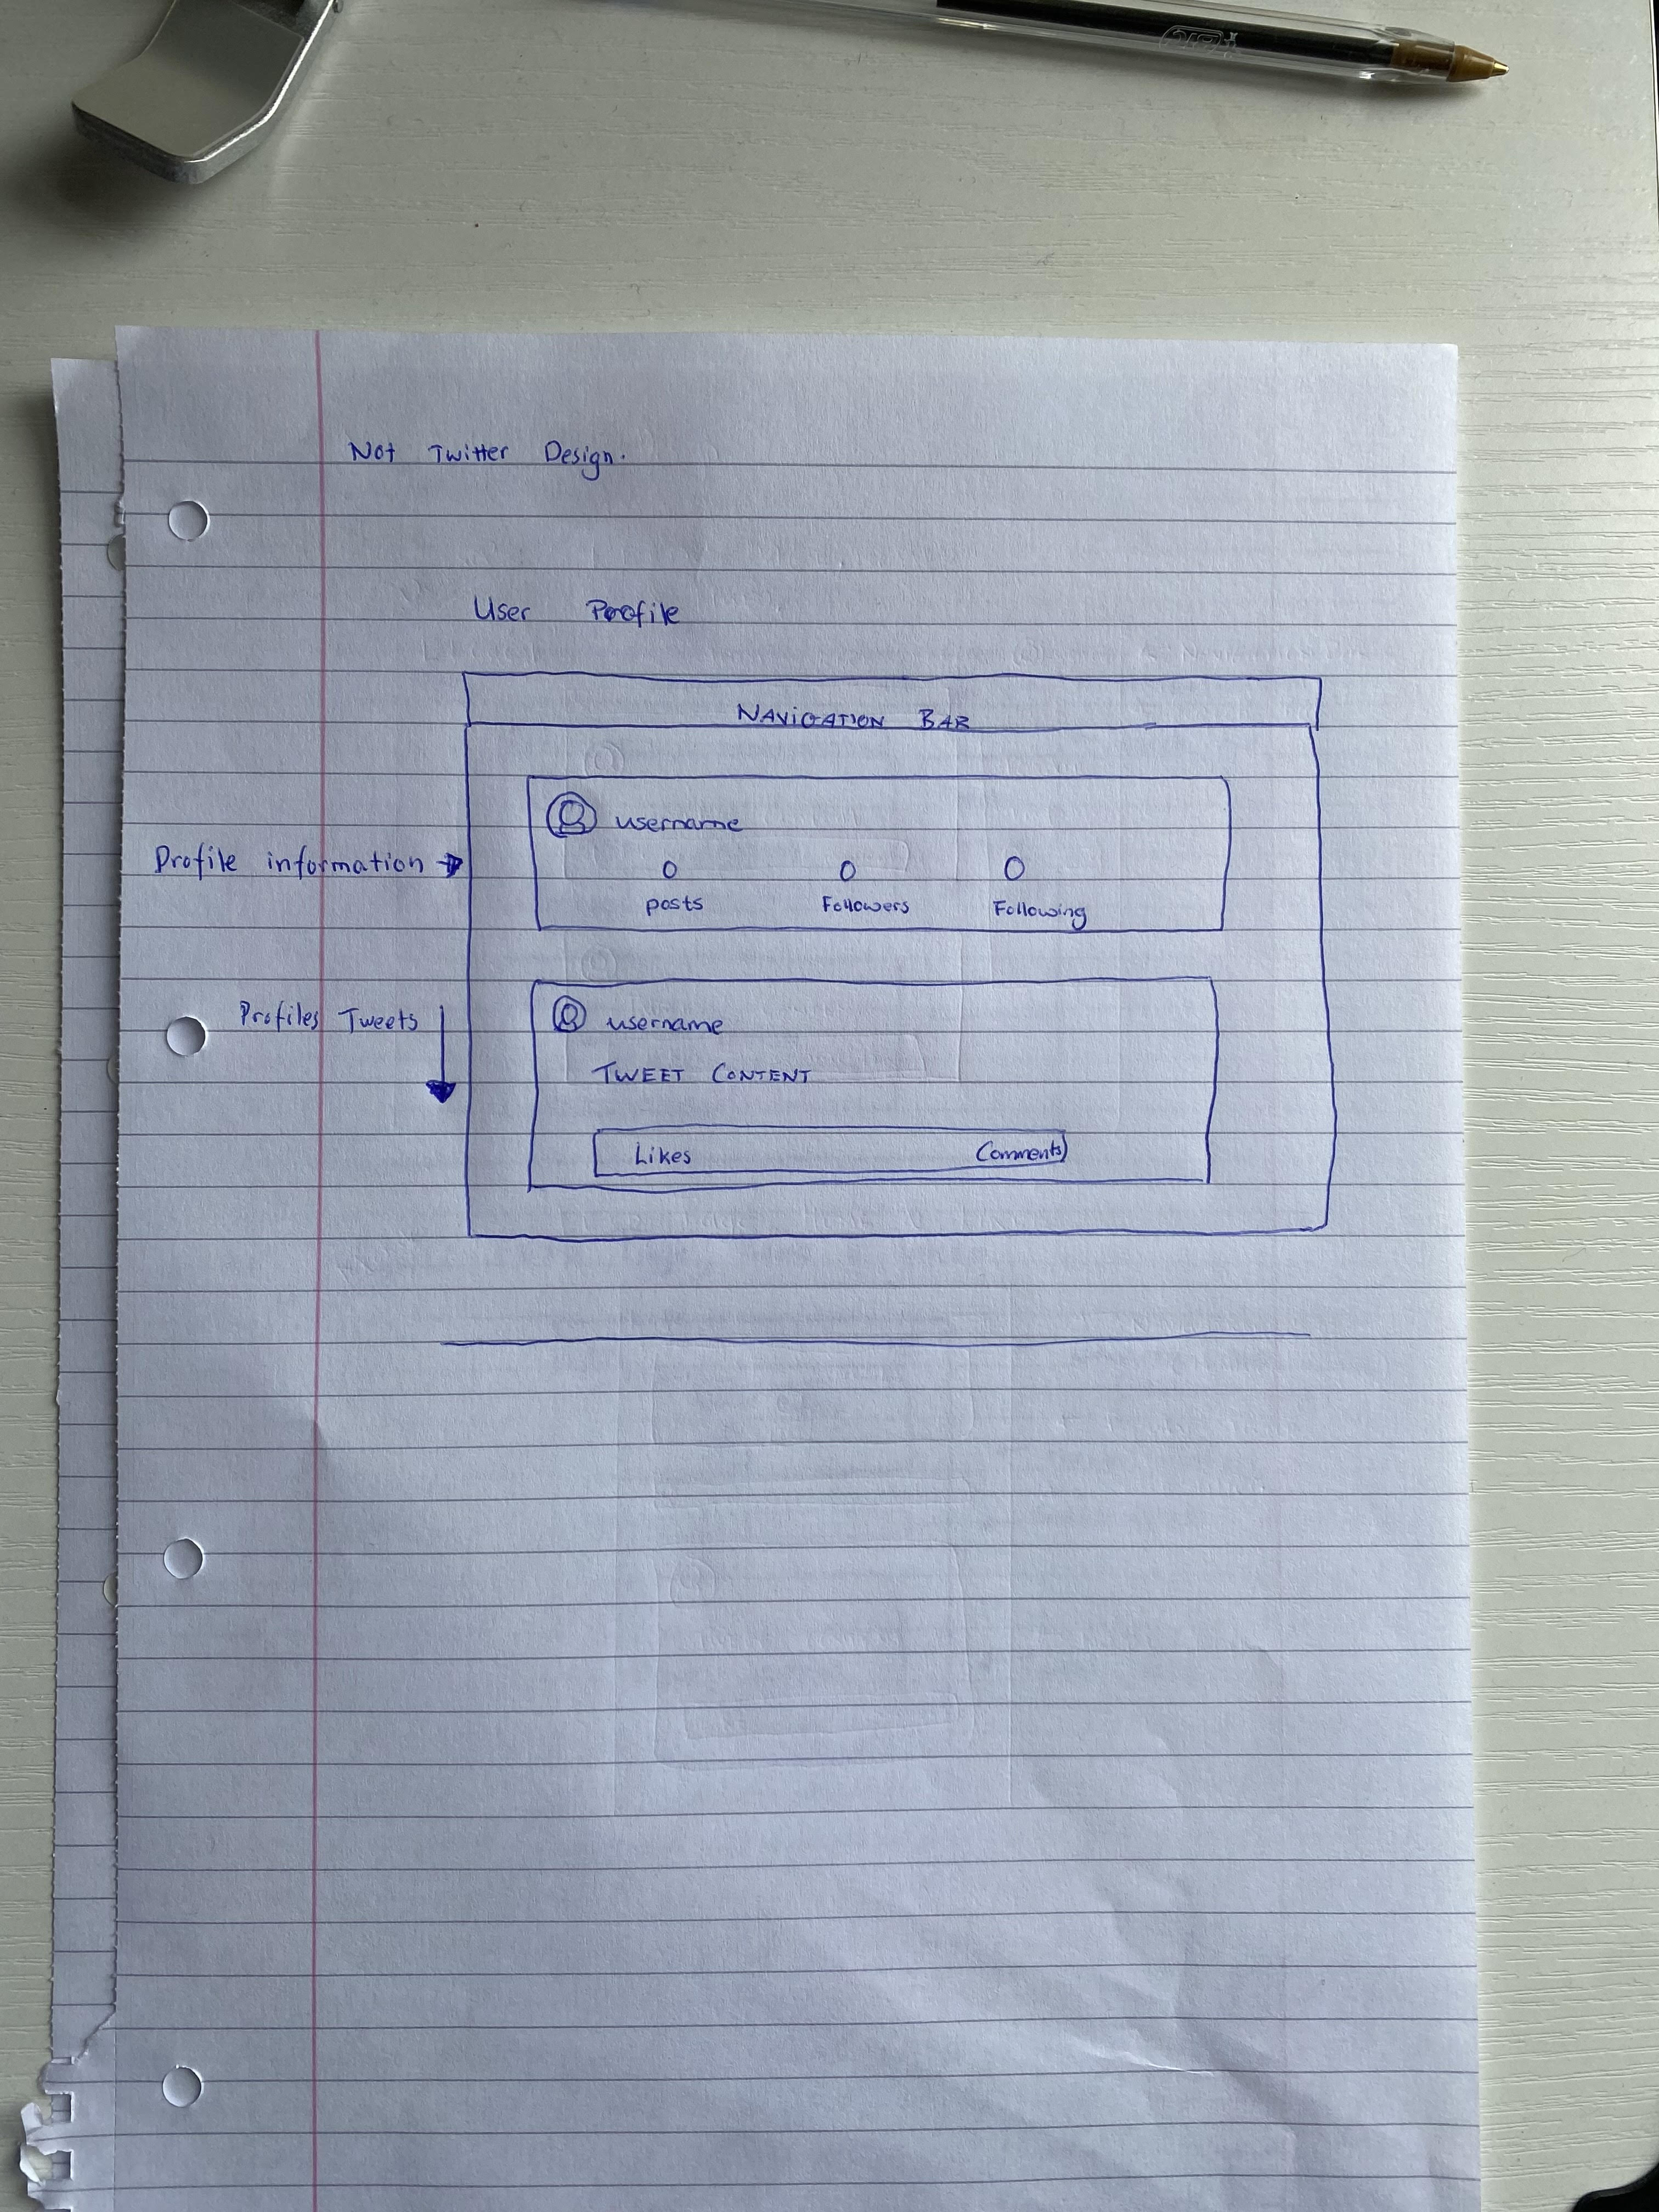 Not Twitter Design.
User Profile
NAVIGATION BAR
username
Profile information
0 0 0
posts Followers Following
Profiles Tweets
username
TWEET CONTENT
Likes Comments
BIC